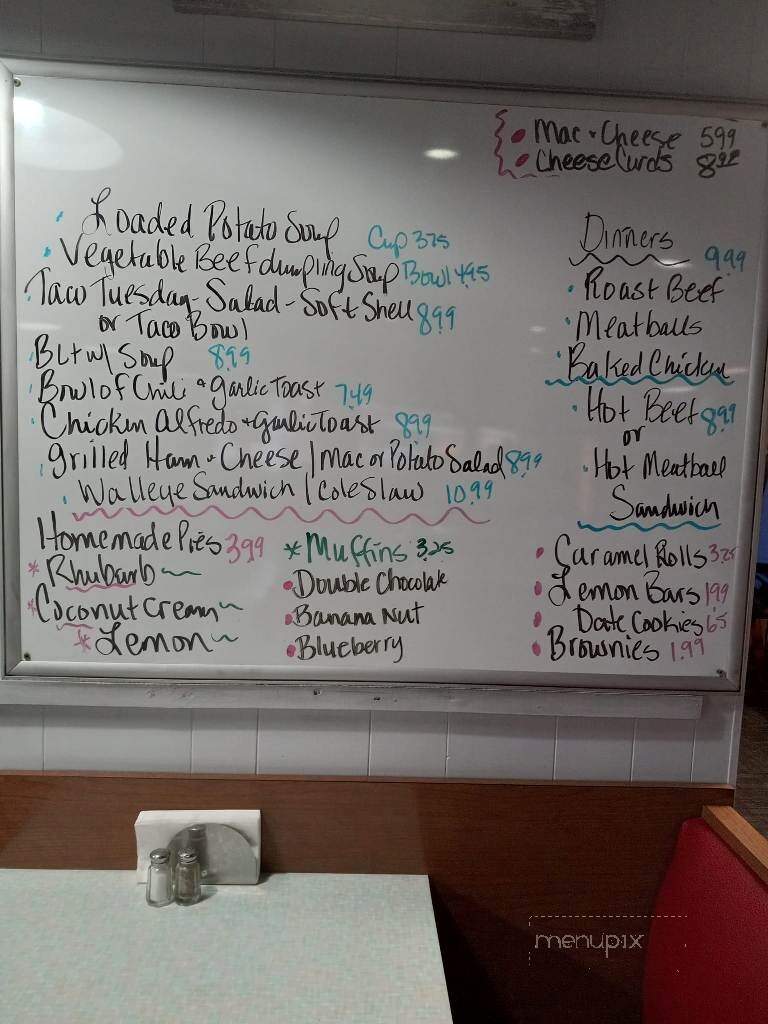 Mac + Cheese 599
Cheese Curds 899
Loaded Potato Soup
Cup 375
Vegetable Beef dumpling Soup Bowl 495
Taco Tuesday - Salad - Soft Shell
or Taco Bowl 899
BLT w/ Soup 899
Bowl of Chili + garlic Toast 7.49
Chicken Alfredo + Garlic Toast 899
grilled Ham + Cheese | Mac or Potato Salad 899
Walleye Sandwich | Cole Slaw 10.99
Dinners
999
Roast Beef
Meatballs
Baked Chicken
Hot Beef 899
or
Hot Meatball
Sandwich
Homemade Pies 399
* Rhubarb ~
* Coconut Cream ~
* Lemon ~
* Muffins 3.25
Double Chocolate
Banana Nut
Blueberry
Caramel Rolls 3.25
Lemon Bars 199
Date Cookies 65
Brownies 1.99
menupix